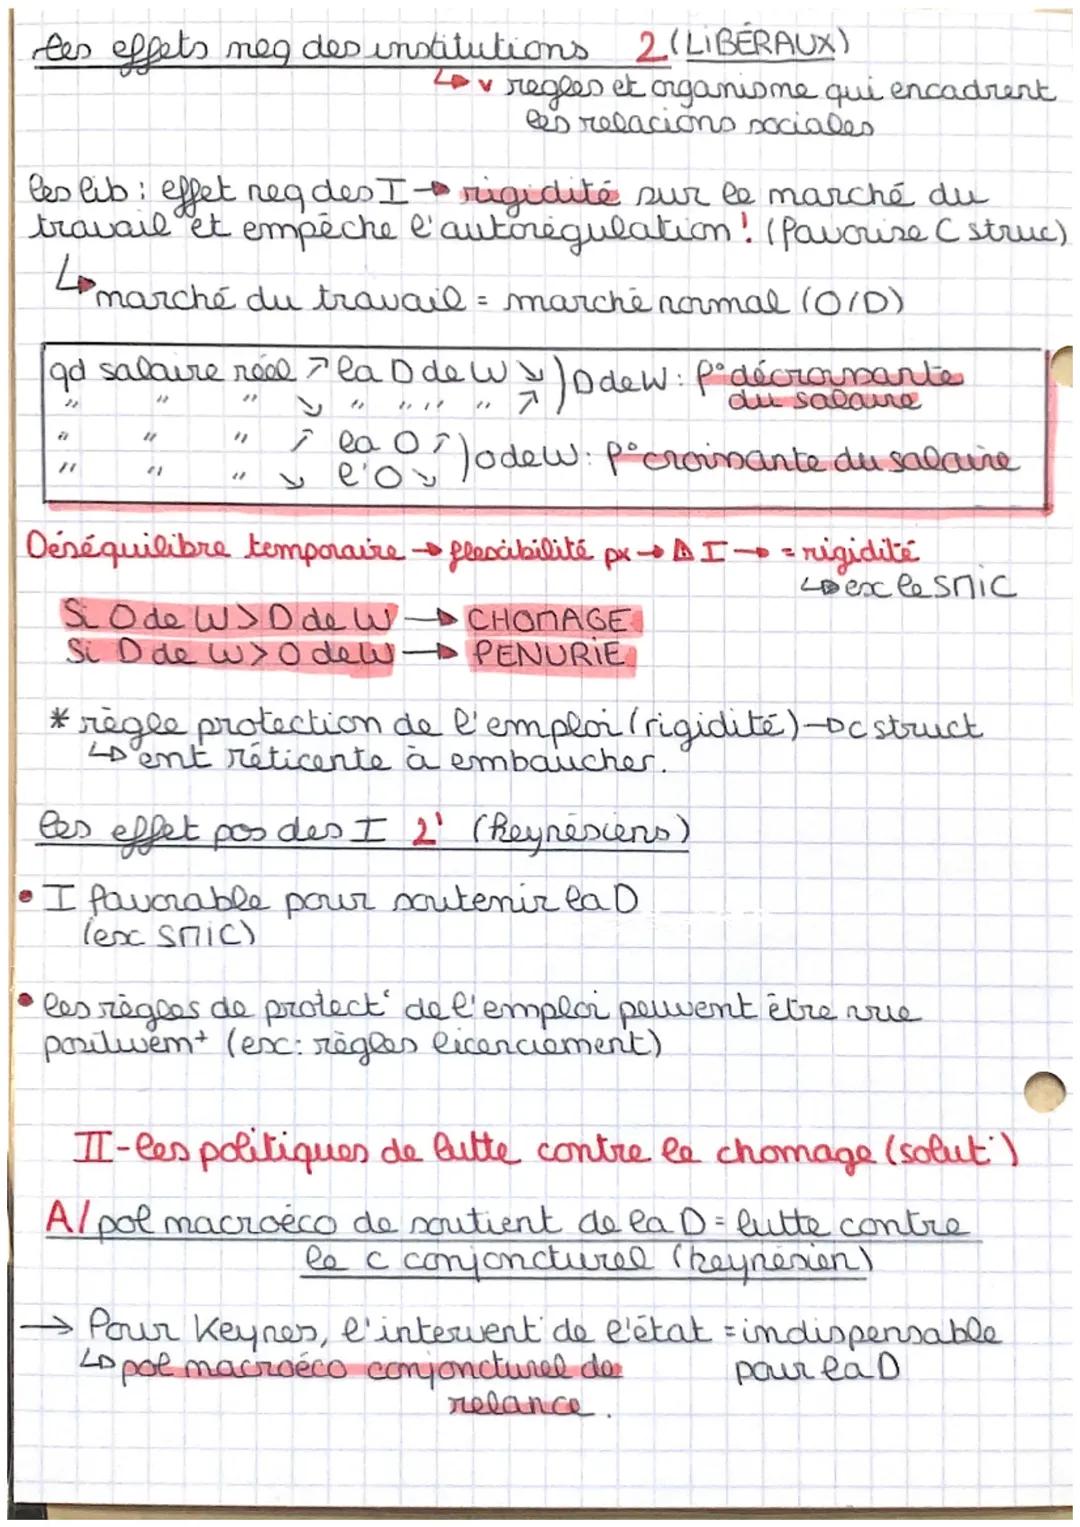 les effets neg des institutions 2 (LIBÉRAUX)
↳ v regles et organisme qui encadrent
les relacions sociales
les lib : effet neg des I → rigidité sur le marché du
travail et empêche l'autorégulation ! (favorise C struc)
↳ marché du travail = marché normal (O/D)
qd salaire réel ↗ la D de W ↘ ) D de W : f° décroissante
" " " ↘ " " " " ↗ du salaire
" " " ↗ la O ↗ ) O de W : f° croissante du salaire
" " " ↘ l'O ↘
Déséquilibre temporaire → flexibilité px → ⚠ I → = rigidité
↳ ex le SMIC
Si O de W > D de W → CHOMAGE
Si D de W > O de W → PENURIE
* règle protection de l'emploi (rigidité) → c struct
↳ ent réticente à embaucher.
les effet pos des I 2' (keynésiens)
• I favorable pour soutenir la D
(ex SMIC)
• les règles de protect° de l'emploi peuvent être vue
positivem+ (ex : règles licenciement)
II - les politiques de lutte contre le chomage (solut°)
A / pol macroéco de soutient de la D = lutte contre
le c conjoncturel (keynésien)
→ Pour Keynes, l'intervent° de l'état = indispensable
↳ pol macroéco conjoncturel de pour la D
relance.